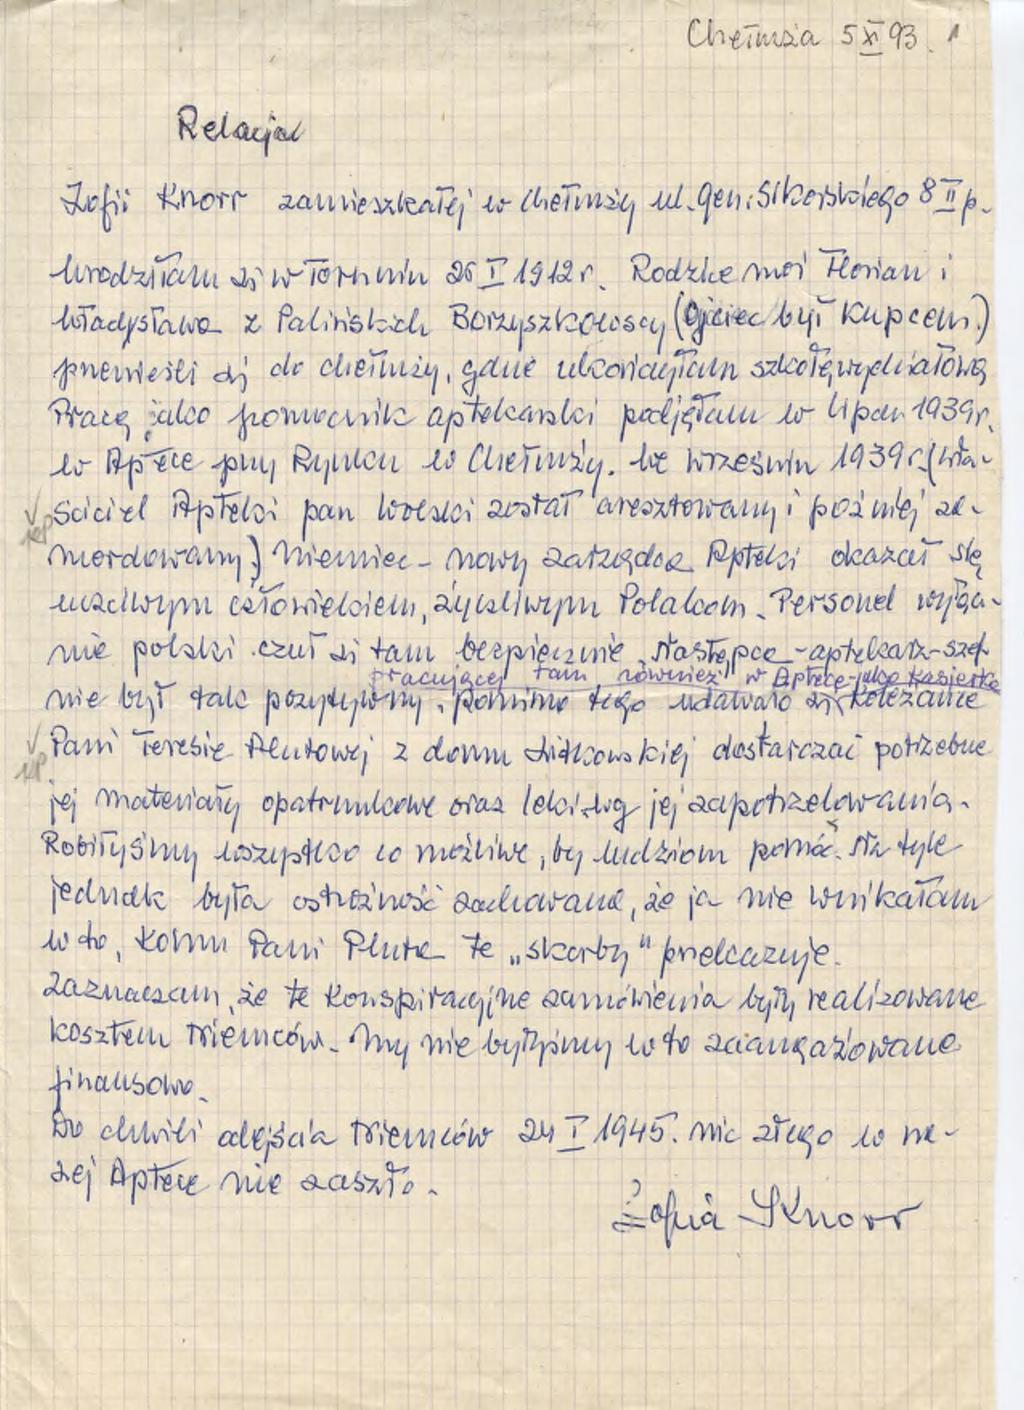 Chełmża 5 XI 93. 1
Relacja
Zofii Knorr zamieszkałej w Chełmży ul. gen. Sikorskiego 8 II p.
Urodziłam się w Toruniu 26 I 1912 r. Rodzice moi Florian i
Władysława z Palińskich Borzyszkowscy (Ojciec był Kupcem.)
przenieśli się do Chełmży, gdzie ukończyłam szkołę wydziałową
Pracę jako pomocnik aptekarski podjęłam w lipcu 1939 r.
w Aptece przy Rynku w Chełmży. We Wrześniu 1939 r. (wła-
ściciel Apteki pan Wolski został aresztowany i poźniej za-
mordowany) Niemiec - nowy zarządca Apteki okazał się
uczciwym człowiekiem, życzliwym Polakom. Personel wyłą-
nie polski czuł się tam bezpiecznie. Następca - aptekarz - szef
pracującej tam również w Aptece - jako Kasjerka
nie był tak pozytywny, pomimo tego udawało się Koleżance
Pani Teresie Plutowej z domu Witkowskiej dostarczać potrzebne
jej materiały opatrunkowe oraz leki wg jej zapotrzebowania.
Robiłyśmy wszystko co możliwe, by ludziom pomóc. Na tyle
jednak była ostrożność zachowana, że ja nie wnikałam
w to, Komu Pani Pluta te „skarby" przekazuje.
Zaznaczam, że te Konspiracyjne zamówienia były realizowane
kosztem Niemców. My nie byłyśmy w to zaangażowane
finansowo.
Do chwili odejścia Niemców 24 I 1945. nic złego w na-
szej Aptece nie zaszło.
Zofia Knorr